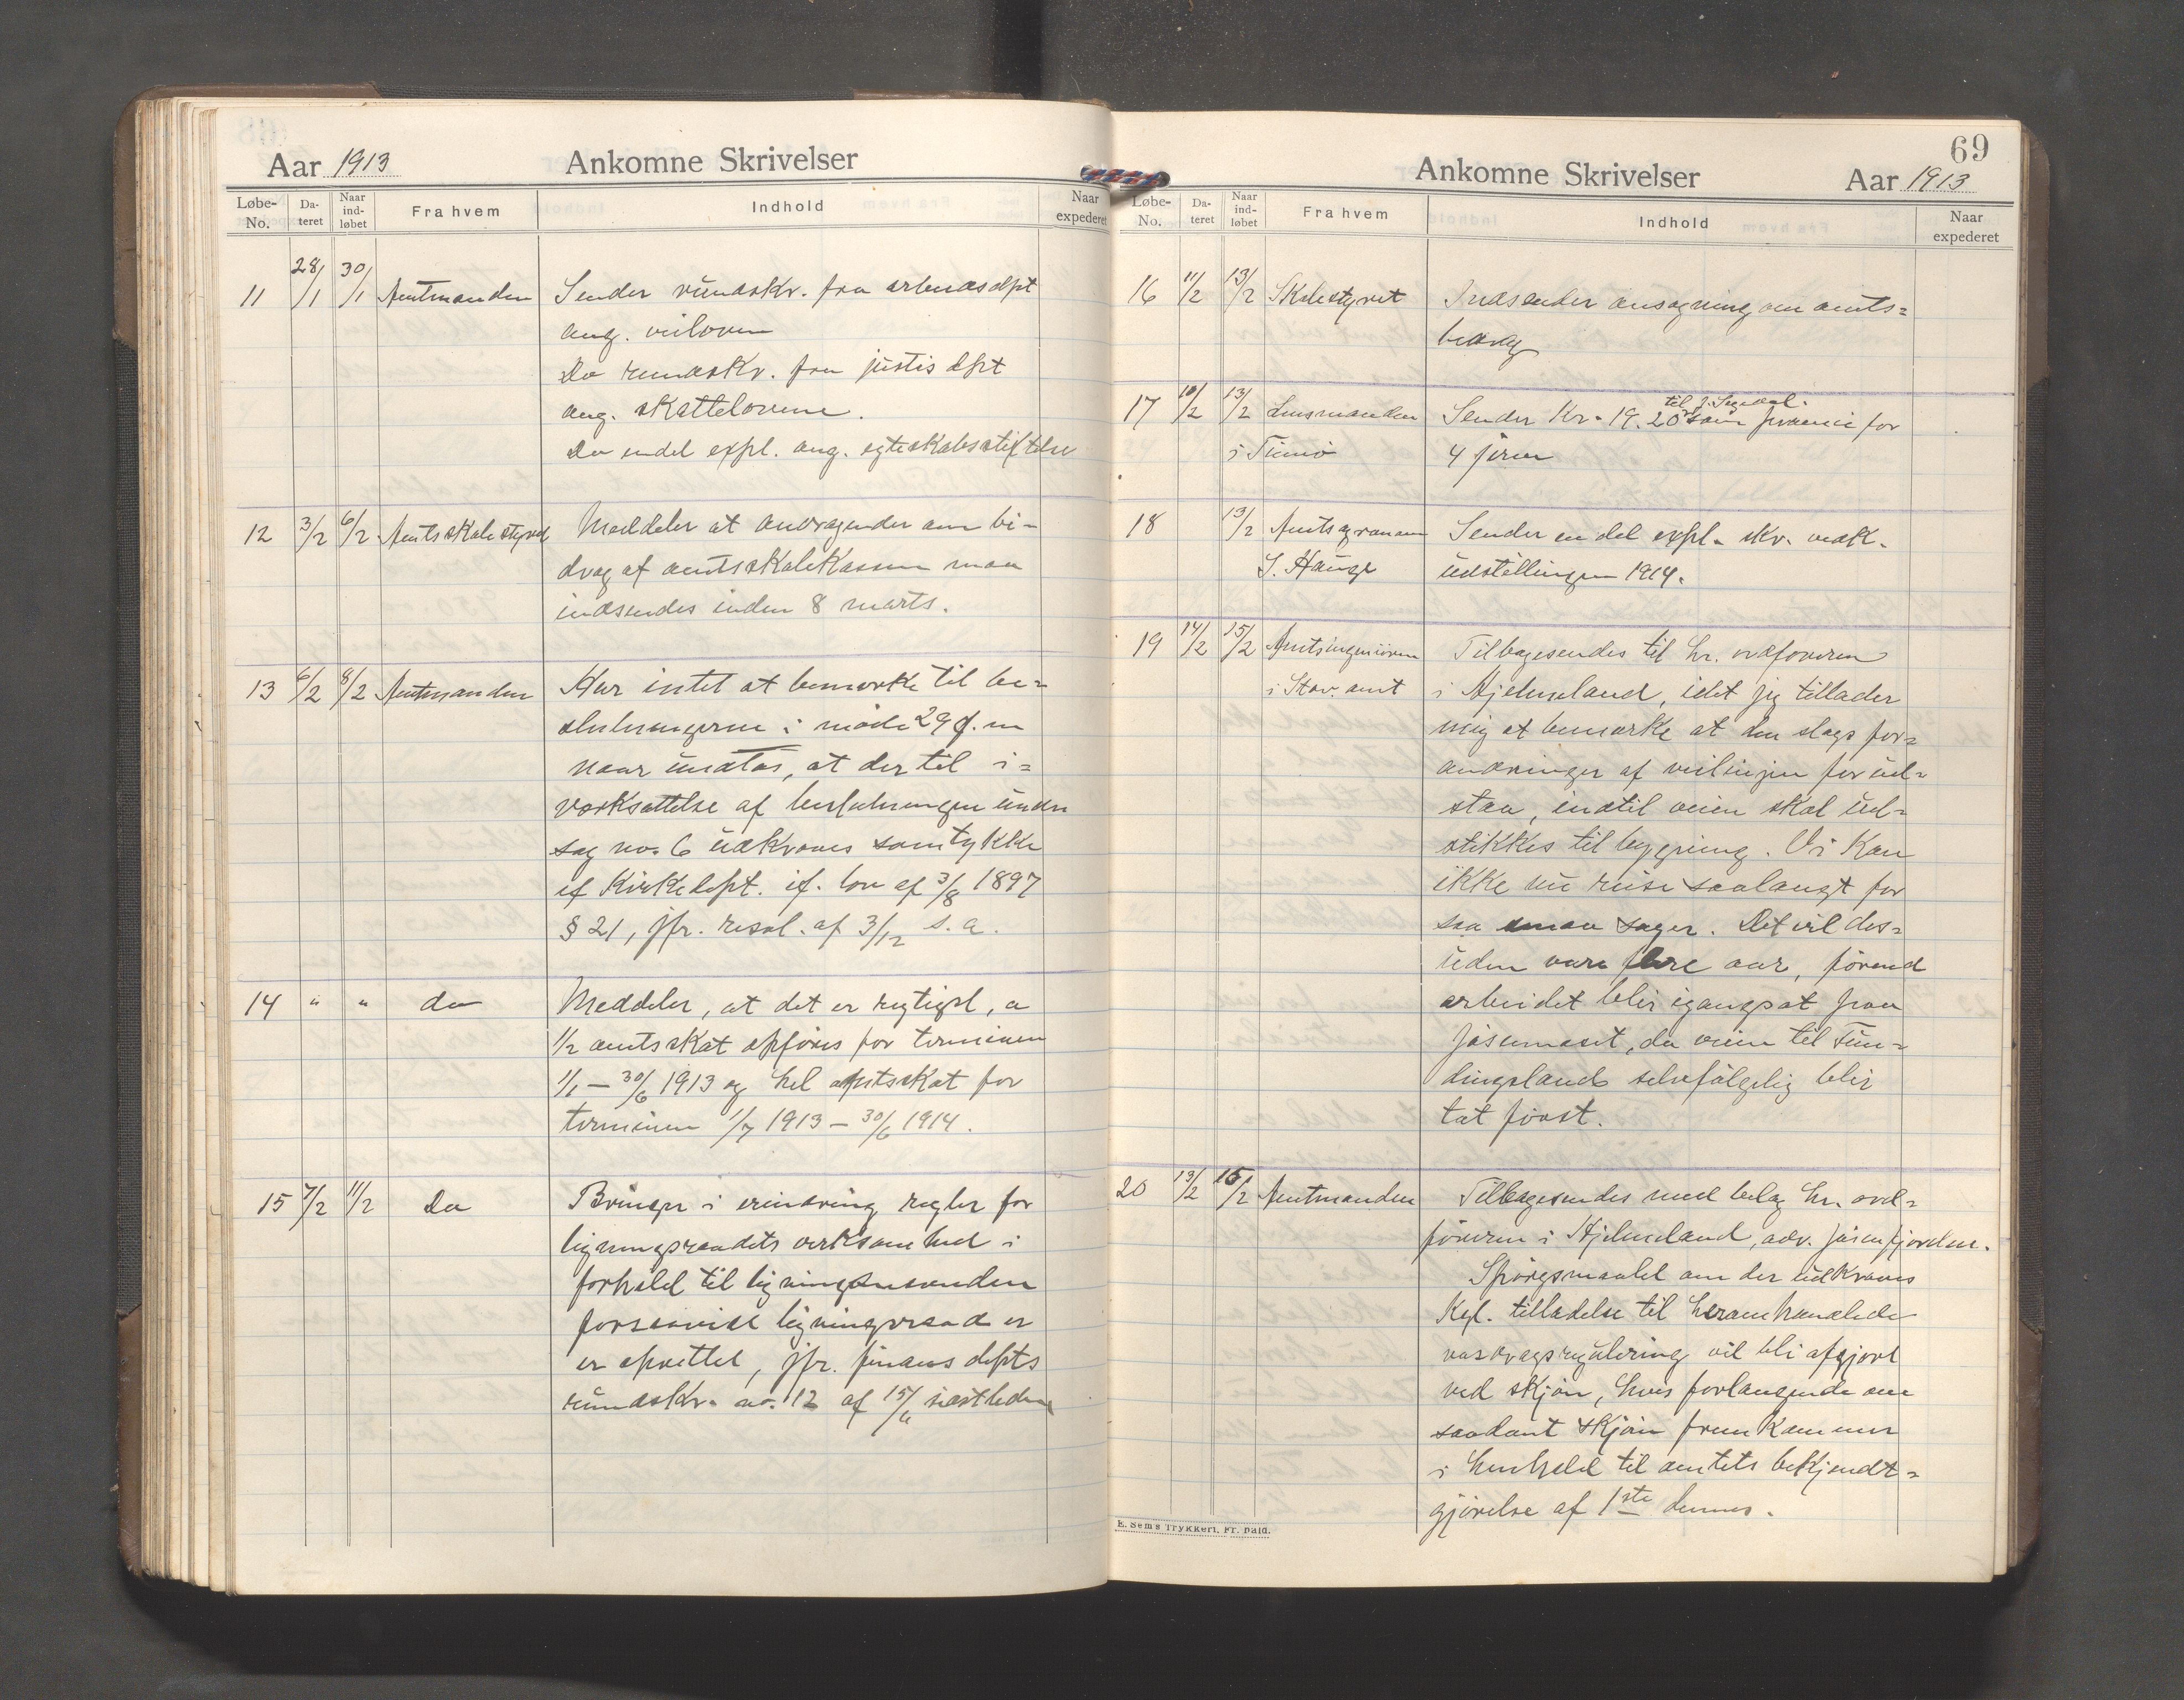 Aar 1913 Ankomne Skrivelser
Løbe-No. Da-teret Naar ind-løbet Fra hvem Indhold Naar expederet
11 28/1 30/1 Amtmanden Sender rundskr. fra arbeidsdept
ang. veiloven
Do rundskr. fra justisdept
ang. skattelovene.
Do endel expl. ang. egteskabsstiftelse
12 3/2 6/2 Amtsskolestyret Meddeler at andragender om bi-
drag af amtsskolekassen maa
indsendes inden 8 marts.
13 6/2 8/2 Amtmanden Har intet at bemerke til be-
slutningerne i møde 29 f.m
naar undtas, at der til i=
værksættelse af beslutningen under
sag no. 6 udkræves samtykke
af Kirkedept. if. lov af 3/8 1897
§ 21, jfr. resol. af 3/12 s.a.
14 " " do Meddeler, at det er rigtigst, a
1/2 amtsskat opføres for terminen
1/1 – 30/6 1913 og hel amtsskat for
terminen 1/7 1913 – 30/6 1914.
15 7/2 11/2 Do Bringer i erindring regler for
ligningsraadets virksomhed i
forhold til ligningsnævnden
forsaavidt ligningsraad er
er oprettet, jfr. finansdepts
rundskr. no. 12 af 15/11 sidstleden
69
Ankomne Skrivelser Aar 1913
Løbe-No. Da-teret Naar ind-løbet Fra hvem Indhold Naar expederet
16 11/2 13/2 Skolestyret Indsender ansøgning om amts=
bidrag
17 10/2 13/2 Lensmanden Sender Kr. 19.20 til J. som præmie for
i Finnø 4 jern
18 13/2 Amtsgronom Sender en del expl. skr. vedk.
S. Hauge udstillingen 1914.
19 14/2 15/2 Amtsingeniøren Tilbagesendes til hr. ordføreren
i Stav. amt i Hjelmeland, idet jeg tillader
mig at bemærke at den slags for=
andringer af veilinjen før ud=
staa, indtil veien skal ud=
stikkes til bygning. Vi kan
ikke nu reise saalangt for
saa smaa sager. Det vil des=
uden være flere aar, førend
arbeidet blir igangsat fra
Jøsenneset, da veien til Tün=
dingsland selvfølgelig blir
tat først.
20 13/2 15/2 Amtmanden Tilbagesendes med bilag hr. ord=
føreren i Hjelmeland, adr. Jøsenfjorden.
Spørgsmaalet om der udkræves
Kgl. tilladelse til heromhandlede
vasdragsregulering vil bli afgjort
ved skjøn, hvis forlangende om
saadant skjøn fremkommer
i henhold til amtets bekjendt=
gjørelse af 1ste dennes.
E. Sem's Trykkeri, Fr. hald.